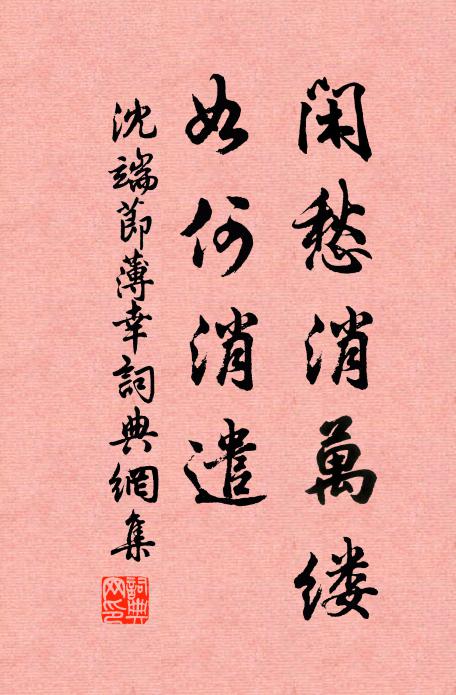 閑愁消萬缕
如何消遣
沈端節薄幸詞典網集
詞典網印